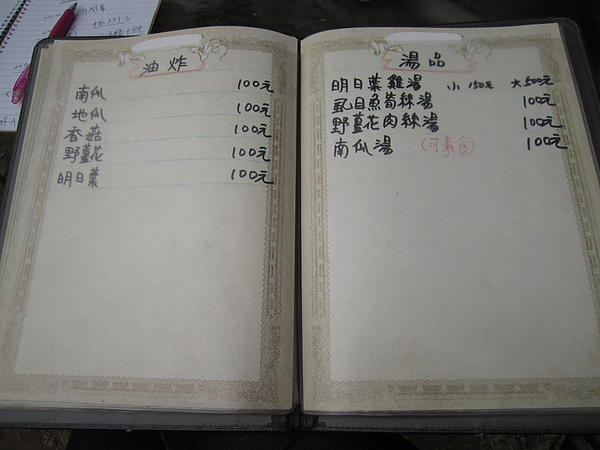 油炸
南瓜 100元
地瓜 100元
香菇 100元
野薑花 100元
明日葉 100元
湯品
明日葉雞湯 小 150元 大500元
虱目魚筍絲湯 100元
野薑花肉絲湯 100元
南瓜湯 (可素食) 100元